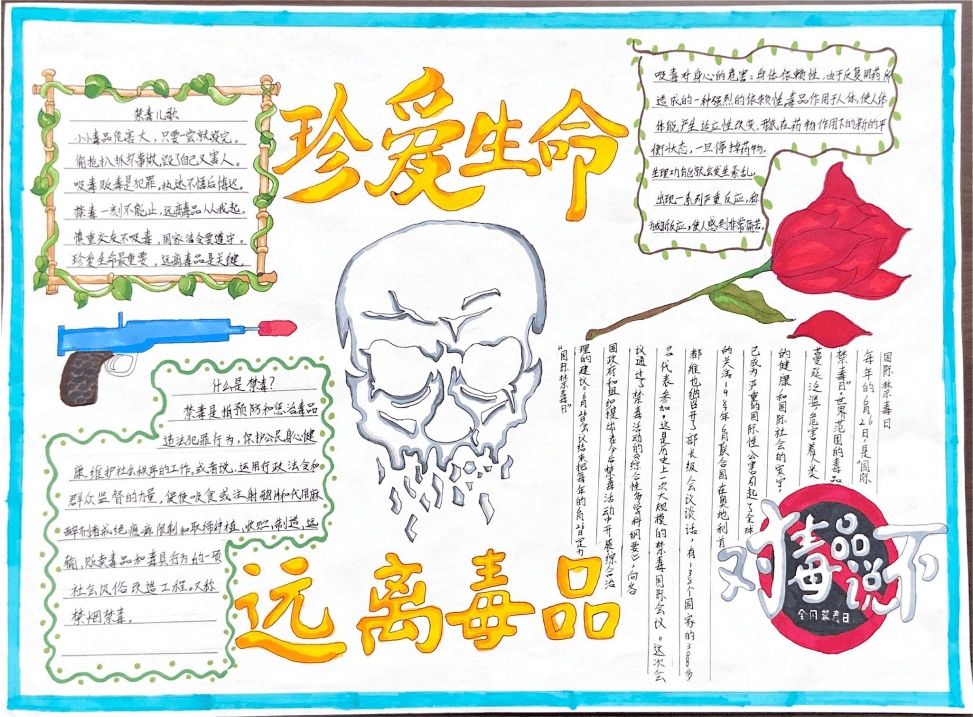 珍爱生命
禁毒儿歌
小小毒品危害大，只要一尝就毁定。
偷抢扒抓坏事做，毁了自己又害人。
吸毒贩毒是犯罪，执迷不悟后悔迟。
禁毒一刻不能止，远离毒品从我起。
慎重交友不吸毒，国家法令要遵守。
珍爱生命最重要，远离毒品是关健。
吸毒对身心的危害：身体依赖性，由于反复用药所
造成的一种强烈的依赖性毒品作用于人体，使人体
体能产生适应性改变，形成在药物作用下的新的平
衡状态，一旦停掉药物，
生理功能就会发生紊乱，
出现一系列严重反应，称
反应，使人感到非常痛苦。
什么是禁毒？
禁毒是指预防和惩治毒品
违法犯罪行为，保护公民身心健
康，维护社会秩序的工作，或者说，运用行政法令和
群众监督的力量，促使吸食或注射
限制和取缔种植，收贮，制造，运
输，贩卖毒品和毒具行为的一项
社会风俗改造工程。又称
禁烟禁毒。
国际禁毒日
每年的6月26日，是“国际
禁毒日”，世界范围的毒品
蔓延泛滥危害着人类
的健康和国际社会的安宁，
已成为严重的国际性公害引起了全球
的关注，1987年6月联合国在奥地利首
都维也纳召开了部长级会议谈话，有138个国家的3000多
名代表参加。这是历史上一次大规模的禁毒国际会议。这次会
议通过了禁毒活动的《综合性多学科纲要》，向各
国政府和组织提出在今后禁毒活动中开展综合治
理的建议。6月26日会议结束把每年的6月26日定为
“国际禁毒日”
对毒品说不
全国禁毒日
远离毒品